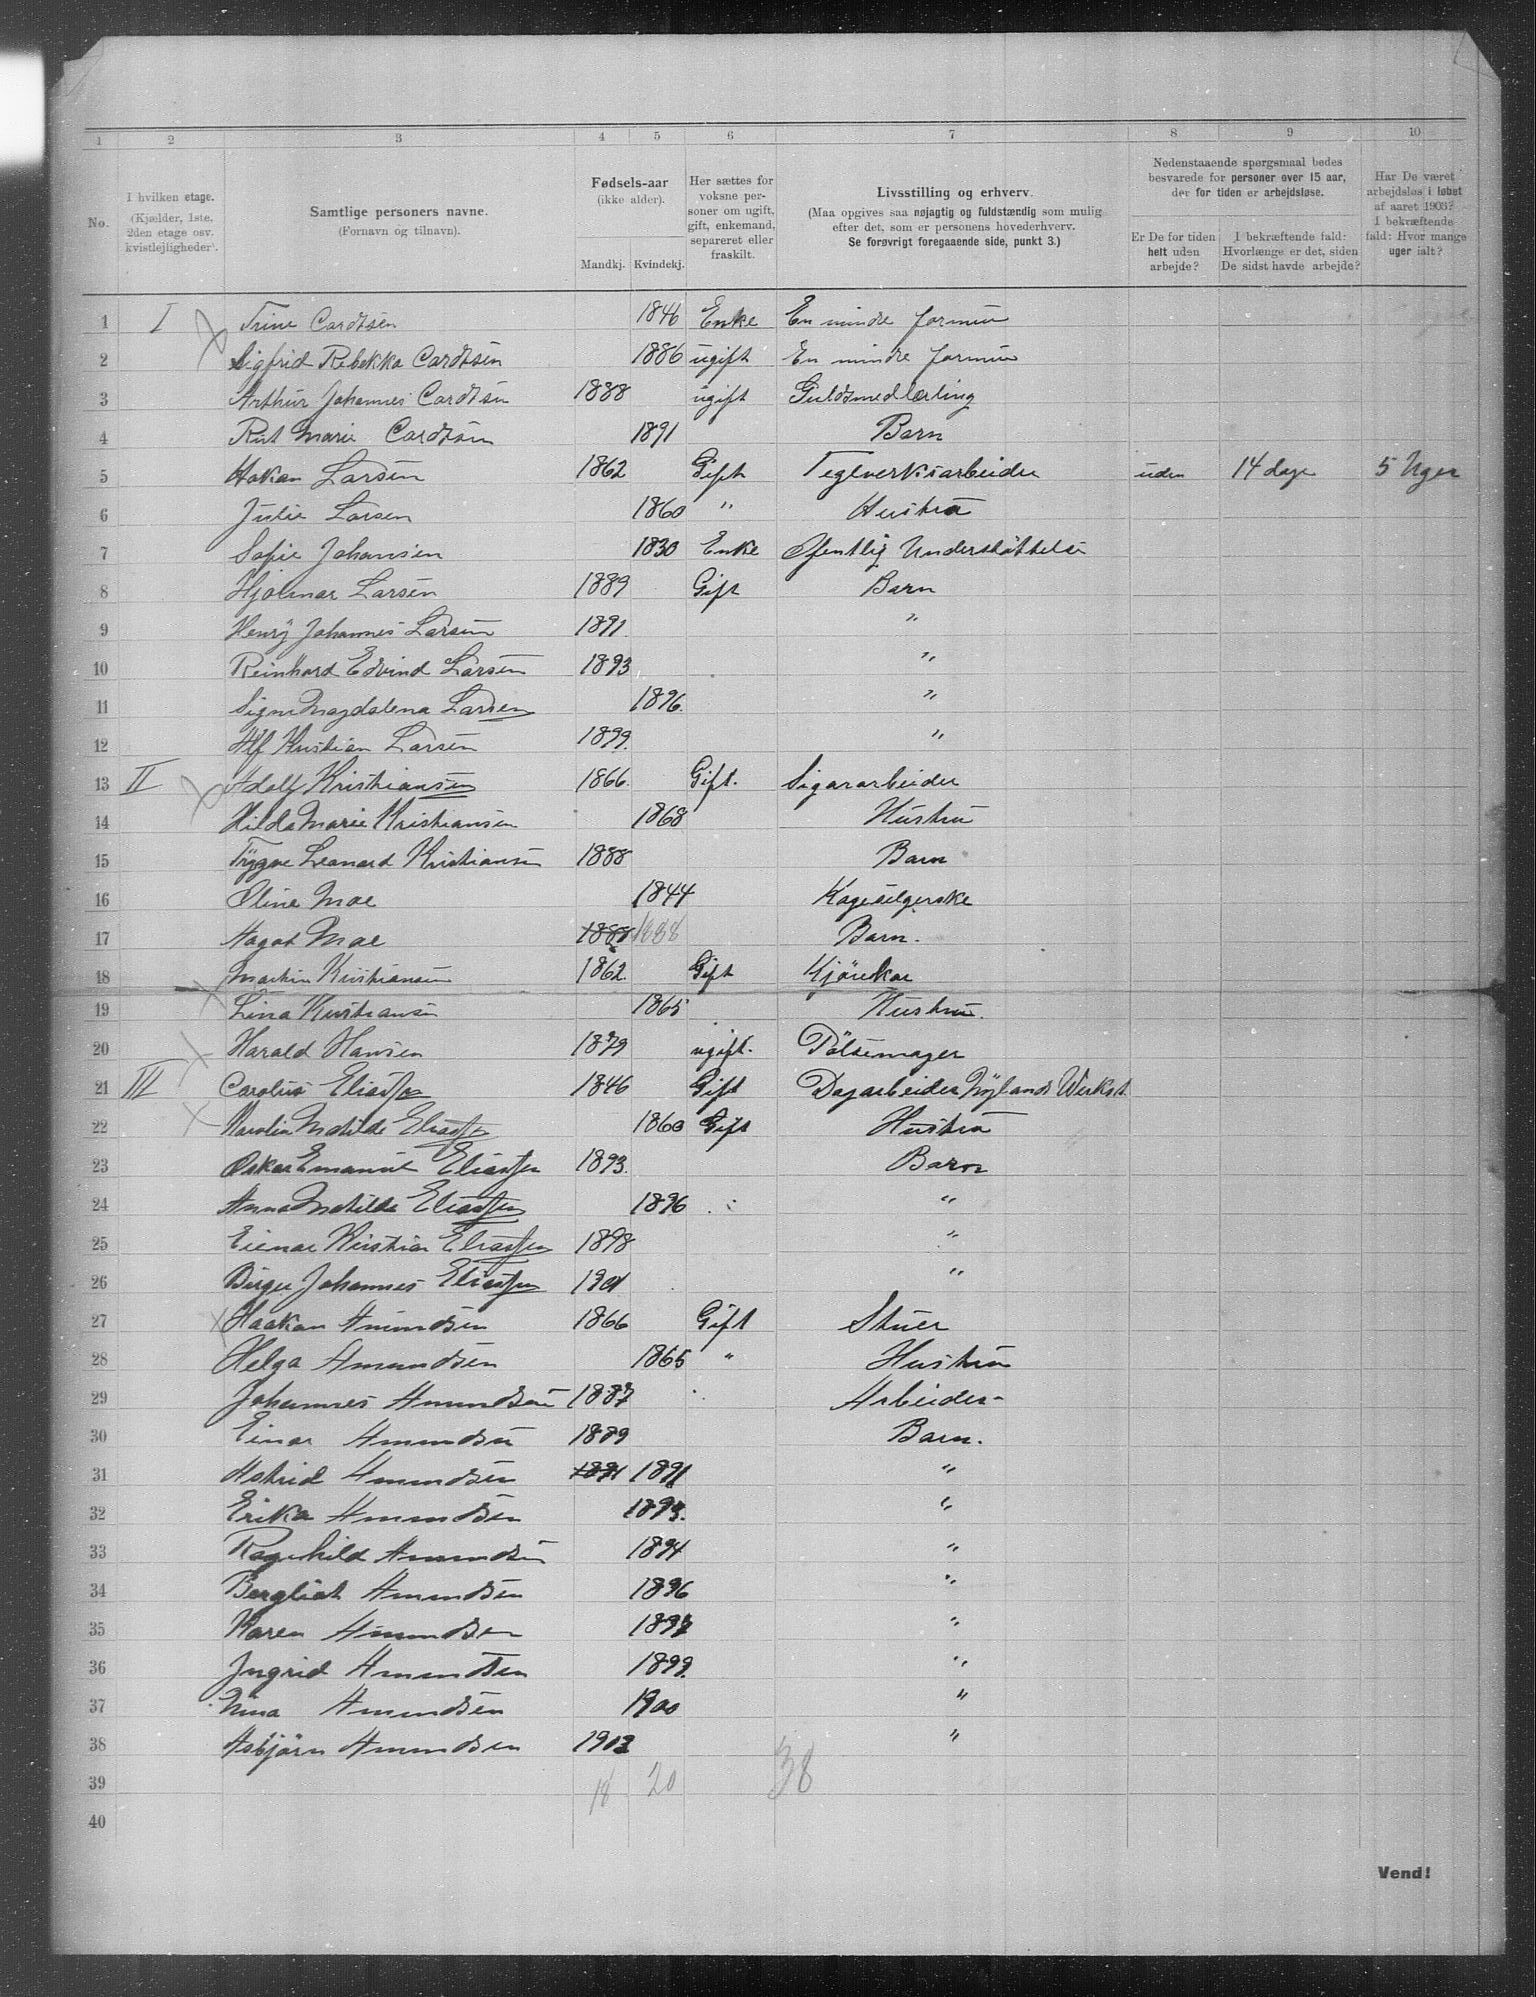 1 2 3 4 5 6 7 8 9 10
No.
I hvilken etage.
(Kjælder, 1ste, 2den etage osv. kvistlejligheder).
Samtlige personers navne.
(Fornavn og tilnavn).
Fødsels-aar
(ikke alder).
Mandkj. Kvindekj.
Her sættes for voksne personer om ugift, gift, enkemand, separeret eller fraskilt.
Livsstilling og erhverv.
(Maa opgives saa nøjagtig og fuldstændig som mulig efter det, som er personens hovederhverv.
Se forøvrigt foregaaende side, punkt 3.)
Nedenstaaende spørgsmaal bedes besvarede for personer over 15 aar, der for tiden er arbejdsløse.
Er De for tiden helt uden arbejde?
I bekræftende fald: Hvorlænge er det, siden De sidst havde arbejde?
Har De været arbejdsløs i løbet af aaret 1903? I bekræftende fald: Hvor mange uger ialt?
1 I Trine Cardtsen 1846 Enke En mindre formue
2 Sigfrid Rebekka Cardtsen 1886 ugift En mindre formue
3 Arthur Johannes Cardtsen 1888 ugift Guldsmedlærling
4 Rut Marie Cardtsen 1891 Barn
5 Hakan Larsen 1862 Gift Teglverksarbeider uden 14 dage 5 Uger
6 Julie Larsen 1860 " Hustru
7 Sofie Johansen 1830 Enke Ofentlig Understøttelse
8 Hjalmar Larsen 1889 Gift Barn
9 Henry Johannes Larsen 1891 "
10 Reinhard Edvind Larsen 1893 "
11 Signe Magdalena Larsen 1896. "
12 Alf Kristian Larsen 1899. "
13 II Adolf Kristiansen 1866. Gift. Sigararbeider
14 Hilda Marie Kristiansen 1868 Hustru
15 Trygve Leonard Kristiansen 1888 Barn
16 Oline Moe 1844 Kageselgerske
17 Aagot Moe 1888 1888 Barn.
18 Martin Kristiansen 1862. Gift Kjørekar
19 Lina Kristiansen 1865 Hustru.
20 Harald Hansen 1879 ugift. Pölsemager
21 III Carolius Eliassen 1846 Gift Dagarbeider Nylands Werkst.
22 Karolin Matilde Eliassen 1860 Gift Hustru
23 Oskar Emanuel Eliassen 1893. Barn
24 Anna Matilde Eliassen 1896 "
25 Einar Kristian Eliassen 1898 "
26 Birger Johannes Eliassen 1901 "
27 Haakan Amundsen 1866 Gift Stuer
28 Helga Amundsen 1865 " Hustru
29 Johannes Amundsen 1887 Arbeider
30 Einar Amundsen 1889 Barn.
31 Astrid Amundsen 1891 1891 "
32 Erika Amundsen 1893. "
33 Ragnhild Amundsen 1894 "
34 Bergliot Amundsen 1896 "
35 Karen Amundsen 1897 "
36 Ingrid Amundsen 1899. "
37 Nina Amundsen 1900 "
38 Asbjørn Amundsen 1903 "
39 18 20 38
40
Vend!